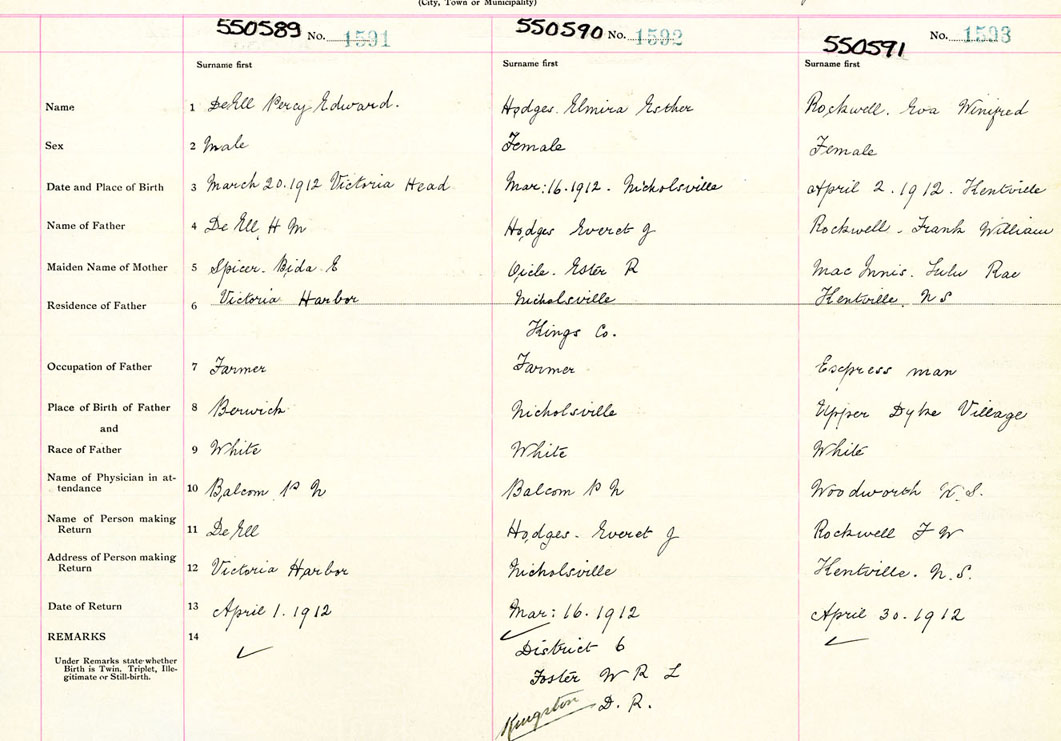 (City, Town or Municipality)
550589 No. 1591 550590 No. 1592 550591 No. 1593
Surname first Surname first Surname first
Name 1 DeEll Percy Edward. Hodges. Elmira Esther Rockwell. Eva Winifred
Sex 2 Male Female Female
Date and Place of Birth 3 March 20.1912 Victoria Head Mar: 16.1912. Nicholsville April 2.1912. Kentville
Name of Father 4 De Ell, H M Hodges Everet J Rockwell - Frank William
Maiden Name of Mother 5 Spicer. E Ester R Mac Innis. Lulu Rae
Residence of Father 6 Victoria Harbor Nicholsville Kentville. N S
Kings Co.
Occupation of Father 7 Farmer Farmer Express man
Place of Birth of Father 8 Berwick Nicholsville Upper Dyke Village
and
Race of Father 9 White White White
Name of Physician in at-
tendance 10 Balcom P N Balcom P N Woodworth W.S.
Name of Person making
Return 11 De Ell Hodges. Everet J Rockwell F W
Address of Person making
Return 12 Victoria Harbor Nicholsville Kentville. N.S.
Date of Return 13 April 1.1912 Mar: 16.1912 April 30.1912
REMARKS 14
Under Remarks state whether
Birth is Twin, Triplet, Ille-
gitimate or Still-birth.
District 6
Foster W R L
Kingston D.R.